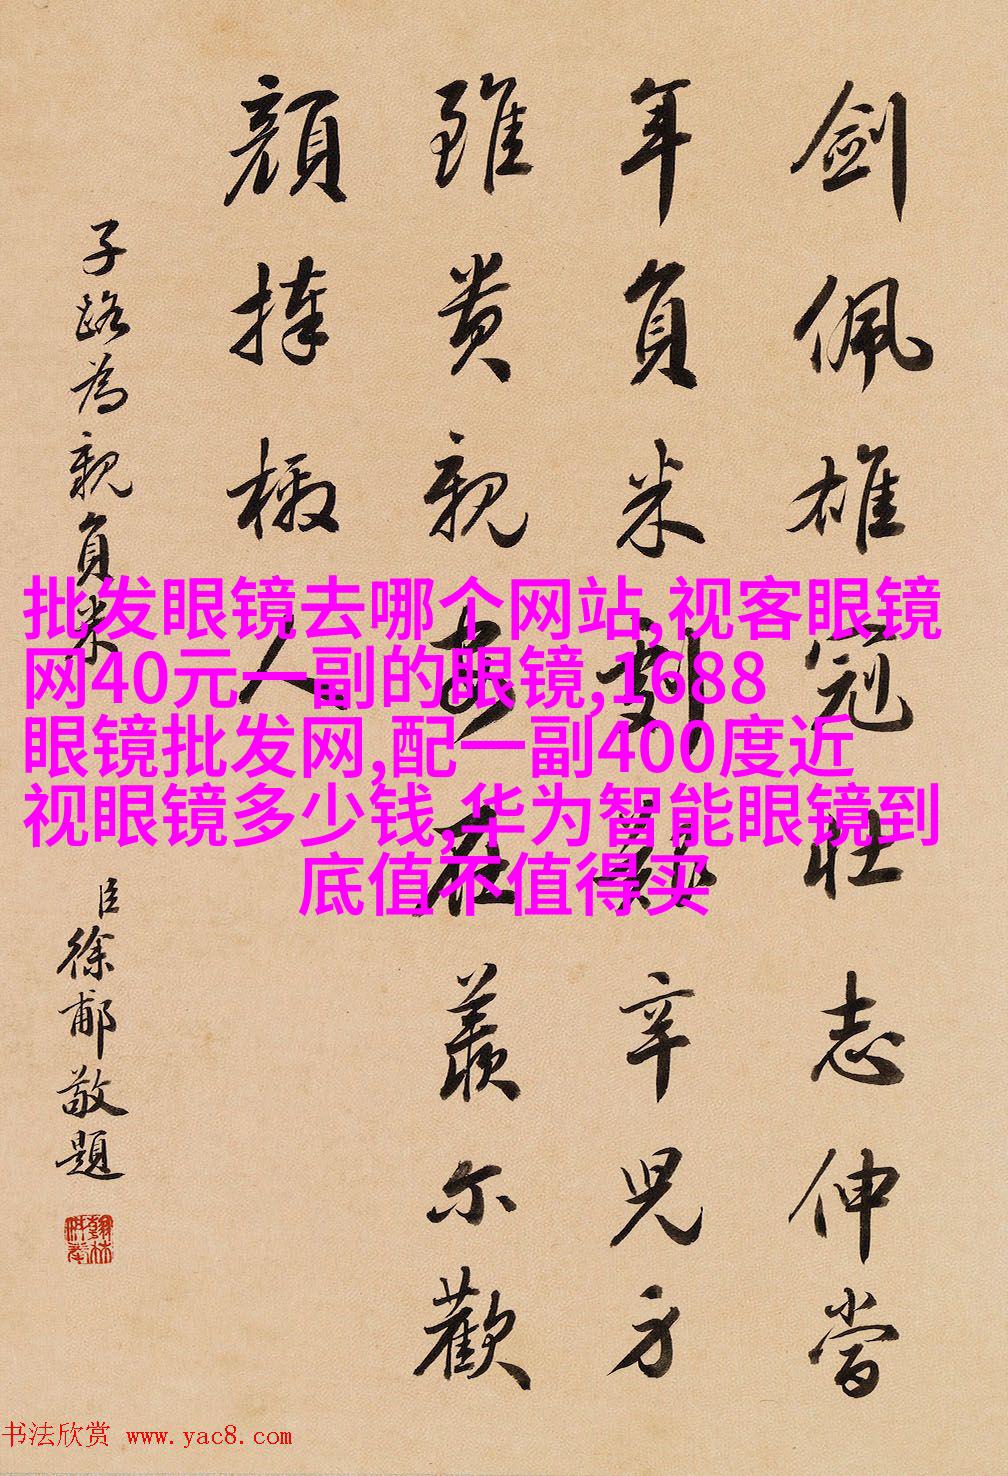 劍佩雄冠壯志伸當
年負米劇艱辛兒方
雖貴親安在羨尔歡
顏捧檄人
子路為親負米
臣徐郙敬題
批发眼镜去哪个网站,视客眼镜
网40元一副的眼镜,1688
眼镜批发网,配一副400度近
视眼镜多少钱,华为智能眼镜到
底值不值得买
书法欣赏 www.yac8.com